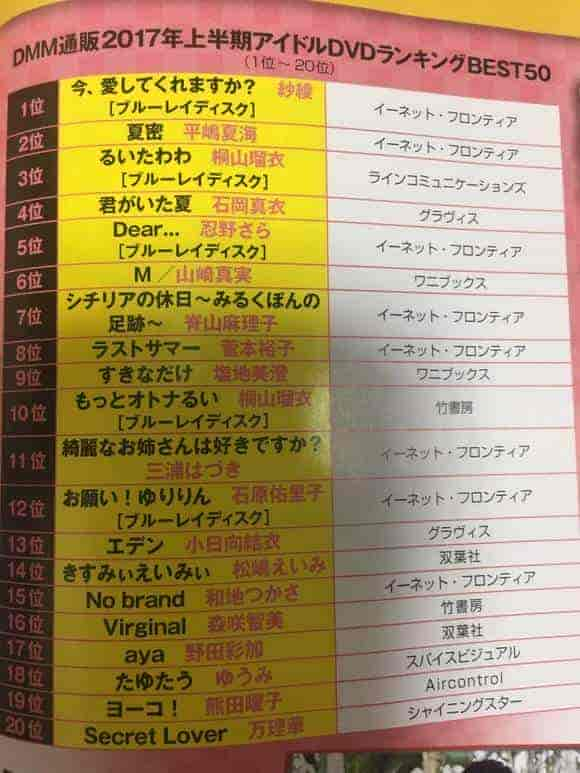 DMM通販2017年上半期アイドルDVDランキングBEST50
(1位～20位)
1位 今、愛してくれますか？ 紗綾 イーネット・フロンティア
[ブルーレイディスク]
2位 夏密 平嶋夏海 イーネット・フロンティア
3位 るいたわわ 桐山瑠衣 ラインコミュニケーションズ
[ブルーレイディスク]
4位 君がいた夏 石岡真衣 グラヴィス
5位 Dear... 忍野さら イーネット・フロンティア
[ブルーレイディスク]
6位 M／山崎真実 ワニブックス
7位 シチリアの休日～みるくぽんの イーネット・フロンティア
足跡～ 脊山麻理子
8位 ラストサマー 菅本裕子 イーネット・フロンティア
9位 すきなだけ 塩地美澄 ワニブックス
10位 もっとオトナるい 桐山瑠衣 竹書房
[ブルーレイディスク]
11位 綺麗なお姉さんは好きですか？ イーネット・フロンティア
三浦はづき
12位 お願い！ゆりりん 石原佑里子 イーネット・フロンティア
[ブルーレイディスク]
13位 エデン 小日向結衣 グラヴィス
14位 きすみぃえいみぃ 松嶋えいみ 双葉社
15位 No brand 和地つかさ イーネット・フロンティア
16位 Virginal 森咲智美 竹書房
17位 aya 野田彩加 双葉社
18位 たゆたう ゆうみ スパイスビジュアル
19位 ヨーコ！ 熊田曜子 Aircontrol
20位 Secret Lover 万理華 シャイニングスター